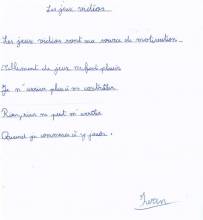 Les jeux vidéos
Les jeux vidéos sont ma source de motivation
Tellement de jeux me font plaisir
Je n'arrive plus à me contrôler
Rien, rien ne peut m'arrêter
Quand je commence à y jouer.
Ivan